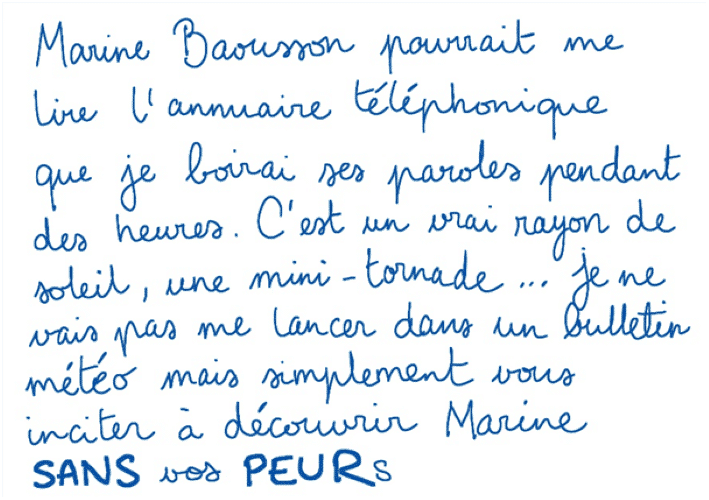 Marine Baousson pourrait me
lire l'annuaire téléphonique
que je boirai ses paroles pendant
des heures. C'est un vrai rayon de
soleil, une mini-tornade... je ne
vais pas me lancer dans un bulletin
météo mais simplement vous
inciter à découvrir Marine
SANS vos PEURs